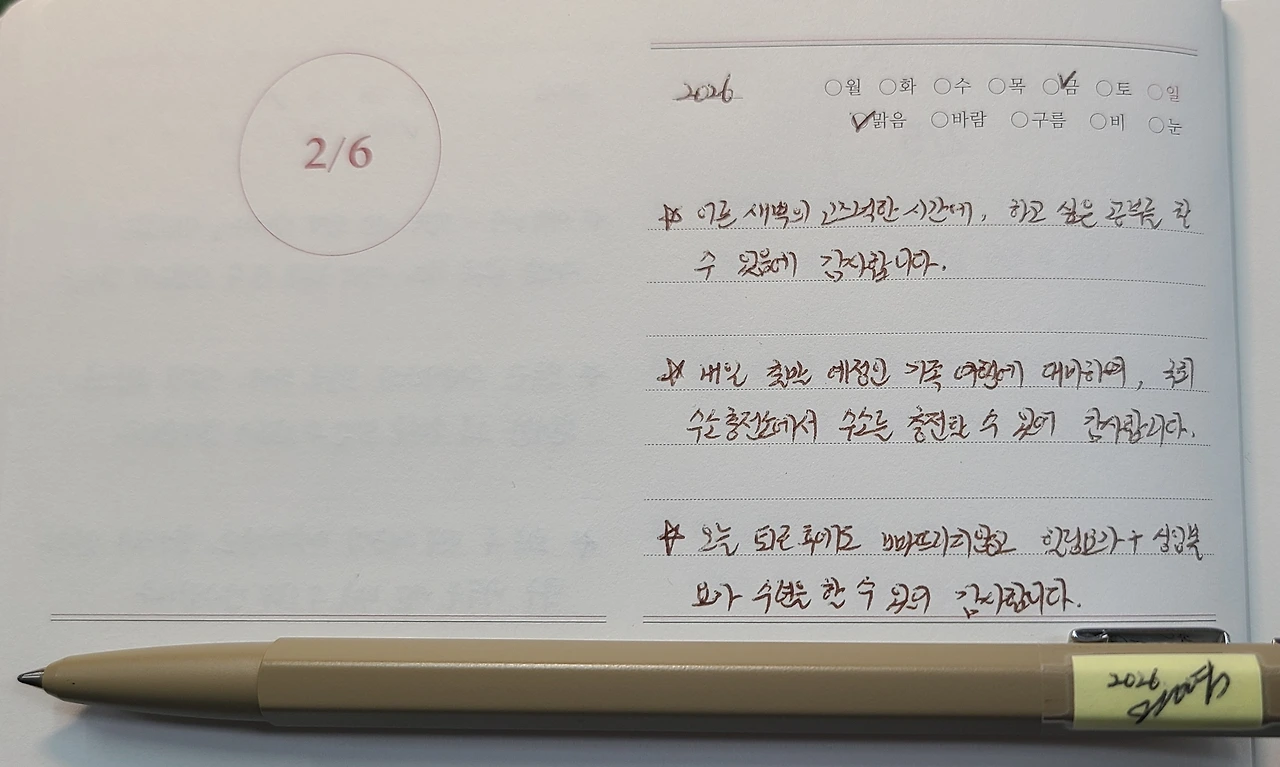 2/6
2026
월 화 수 목 금 토 일
맑음 바람 구름 비 눈
☆ 이른 새벽의 고즈넉한 시간에, 하고 싶은 공부를 할
수 있음에 감사합니다.
☆ 내일 출발 예정인 가족 여행에 대비하여, 국회
수소충전소에서 수소를 충전할 수 있어 감사합니다.
☆ 오늘 퇴근 후에도 빠뜨리지않고 힐링요가 + 싱잉볼
요가 수련을 할 수 있어 감사합니다.
2026